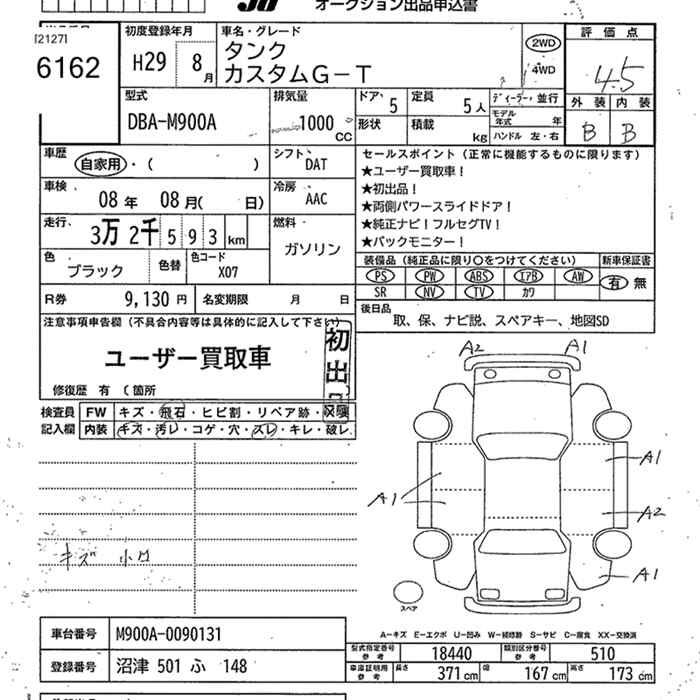 オークション出品申込書
[2127]
6162
初度登録年月
H29
8月
車名・グレード
タンク
カスタムG-T
2WD
4WD
評価点
4.5
外装 内装
B B
型式
DBA-M900A
排気量
1000 CC
ドア 5
定員 5人
形状
積載 kg
ディーラー・並行
モデル年式 年
ハンドル 左・右
車歴
自家用・( )
シフト DAT
車検
08年 08月( 日)
冷房 AAC
走行
3万2千593km
燃料
ガソリン
色
ブラック
色替
色コード
X07
R券 9,130円
名変期限 月 日
セールスポイント (正常に機能するものに限ります)
★ユーザー買取車!
★初出品!
★両側パワースライドドア!
★純正ナビ!フルセグTV!
★バックモニター!
装備品 (純正品に限り○をつけてください)
新車保証書
PS PW ABS エアB AW
有 無
SR NV TV カワ
後日品
取、保、ナビ説、スペアキー、地図SD
注意事項申告欄 (不具合内容等は具体的に記入して下さい)
ユーザー買取車
初出
修復歴 有 (箇所
検査員記入欄
FW キズ・飛石・ヒビ割・リペア跡・
内装 キズ・汚レ・コゲ・穴・スレ・キレ・破レ
A2 A1
A1
A1
A2
A1
キズ 小口
スペア
A-キズ E-エクボ U-凹み W-補修跡 S-サビ C-腐食 XX-交換済
車台番号 M900A-0090131
登録番号 沼津 501 ふ 148
型式指定番号参考 18440
類別区分番号参考 510
車庫証明用参考 長さ 371cm 幅 167cm 高さ 173cm